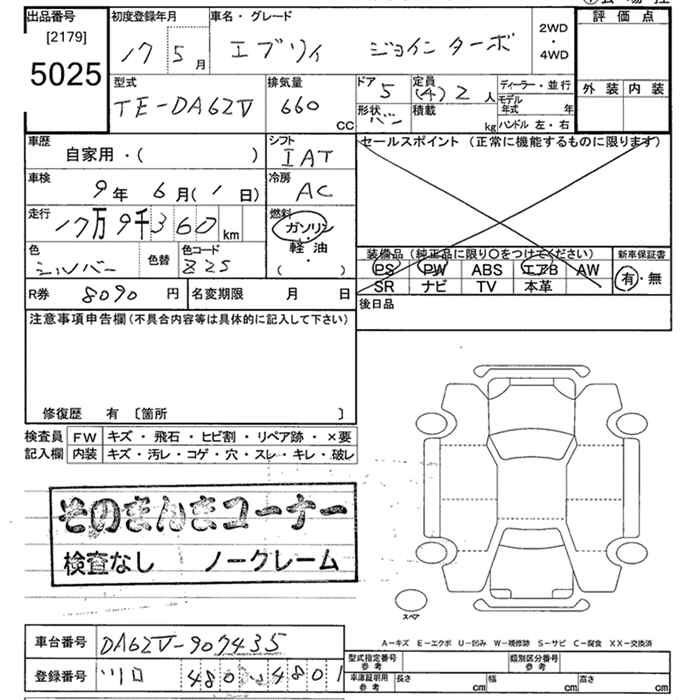 出品番号 初度登録年月 車名・グレード 評価点
[2179] 17 5月 エブリイ ジョインターボ 2WD・4WD
5025
型式 排気量 ドア 定員 ディーラー・並行 外装 内装
TE-DA62V 660CC 5 (4) 2人 モデル年式 年
形状 バン 積載 kg ハンドル 左・右
車歴 シフト セールスポイント (正常に機能するものに限ります)
自家用・( ) IAT
車検 9年 6月(1日) 冷房 AC
走行 17万9千360km 燃料 ガソリン・軽油・( )
色 シルバー 色替 色コード Z2S
装備品 (純正品に限り○をつけてください) 新車保証書
PS PW ABS エアB AW 有・無
SR ナビ TV 本革
R券 8090円 名変期限 月 日 後日品
注意事項申告欄(不具合内容等は具体的に記入して下さい)
修復歴 有 〔箇所 〕
検査員 FW キズ・飛石・ヒビ割・リペア跡・×要
記入欄 内装 キズ・汚レ・コゲ・穴・スレ・キレ・破レ
そのまんまコーナー
検査なし ノークレーム
スペア
A-キズ E-エクボ U-凹み W-補修跡 S-サビ C-腐食 XX-交換済
車台番号 DA62V-907435 型式指定番号 参考 類別区分番号 参考
登録番号 川口 480 ら4801 車庫証明用 参考 長さ cm 幅 cm 高さ cm